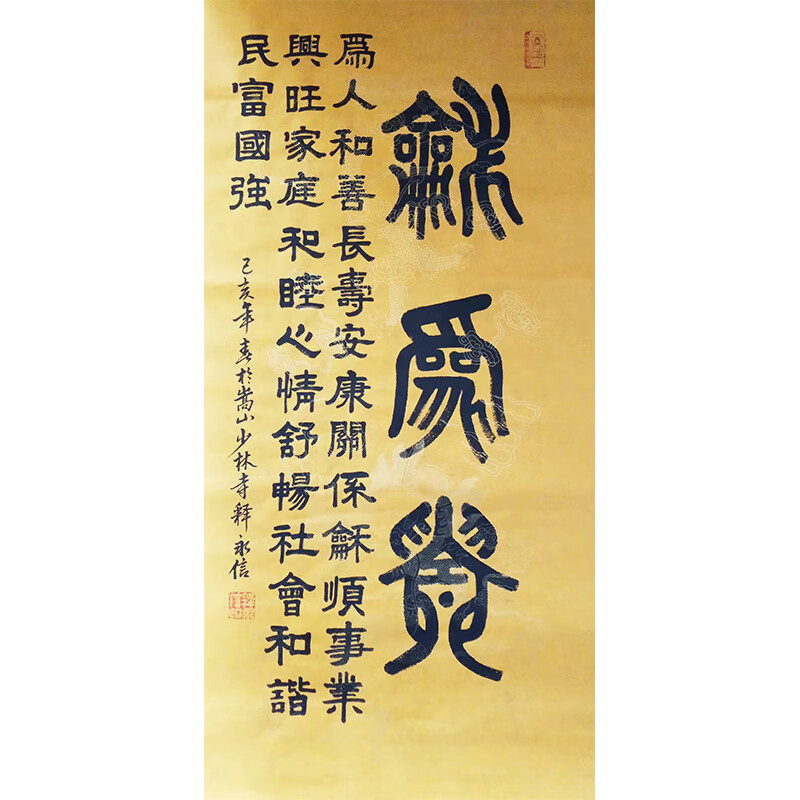 龢爲貴
爲人和善長壽安康關係龢順事業
興旺家庭和睦心情舒暢社會和諧
民富國強
己亥年春於嵩山少林寺釋永信